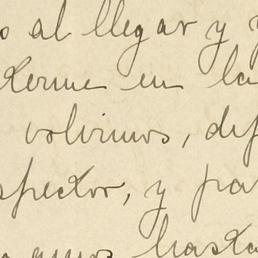 al llegar y
en la
volvimos, dif
spector, y pa
hasta